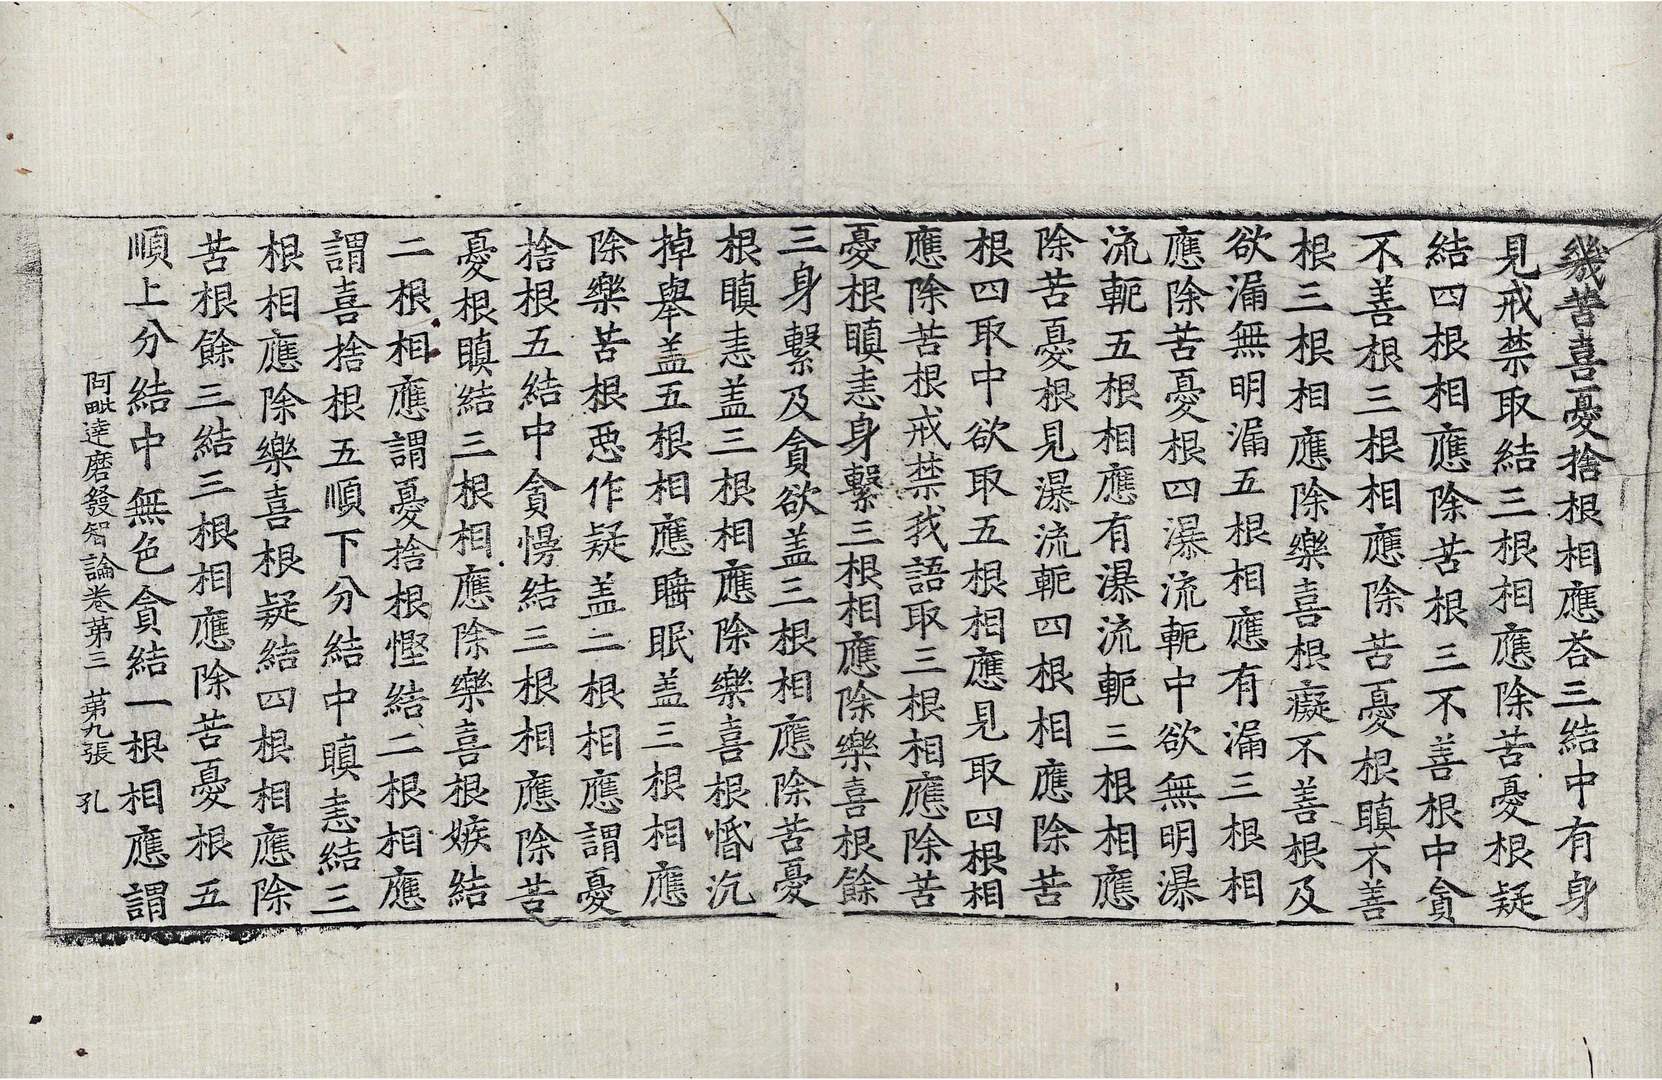 幾苦喜憂捨根相應荅三結中有身
見戒禁取結三根相應除苦憂根疑
結四根相應除苦根三不善根中貪
不善根三根相應除苦憂根瞋不善
根三根相應除樂喜根癡不善根及
欲漏無明漏五根相應有漏三根相
應除苦憂根四瀑流軛中欲無明瀑
流軛五根相應有瀑流軛三根相應
除苦憂根見瀑流軛四根相應除苦
根四取中欲取五根相應見取四根相
應除苦根戒禁我語取三根相應除苦
憂根瞋恚身繫三根相應除樂喜根餘
三身繫及貪欲盖三根相應除苦憂
根瞋恚盖三根相應除樂喜根惛沉
掉舉盖五根相應睡眠盖三根相應
除樂苦根惡作疑盖二根相應謂憂
捨根五結中貪慢結三根相應除苦
憂根瞋結三根相應除樂喜根嫉結
二根相應謂憂捨根慳結二根相應
謂喜捨根五順下分結中瞋恚結三
根相應除樂喜根疑結四根相應除
苦根餘三結三根相應除苦憂根五
順上分結中無色貪結一根相應謂
阿毗達磨發智論卷苐三 苐九張 孔